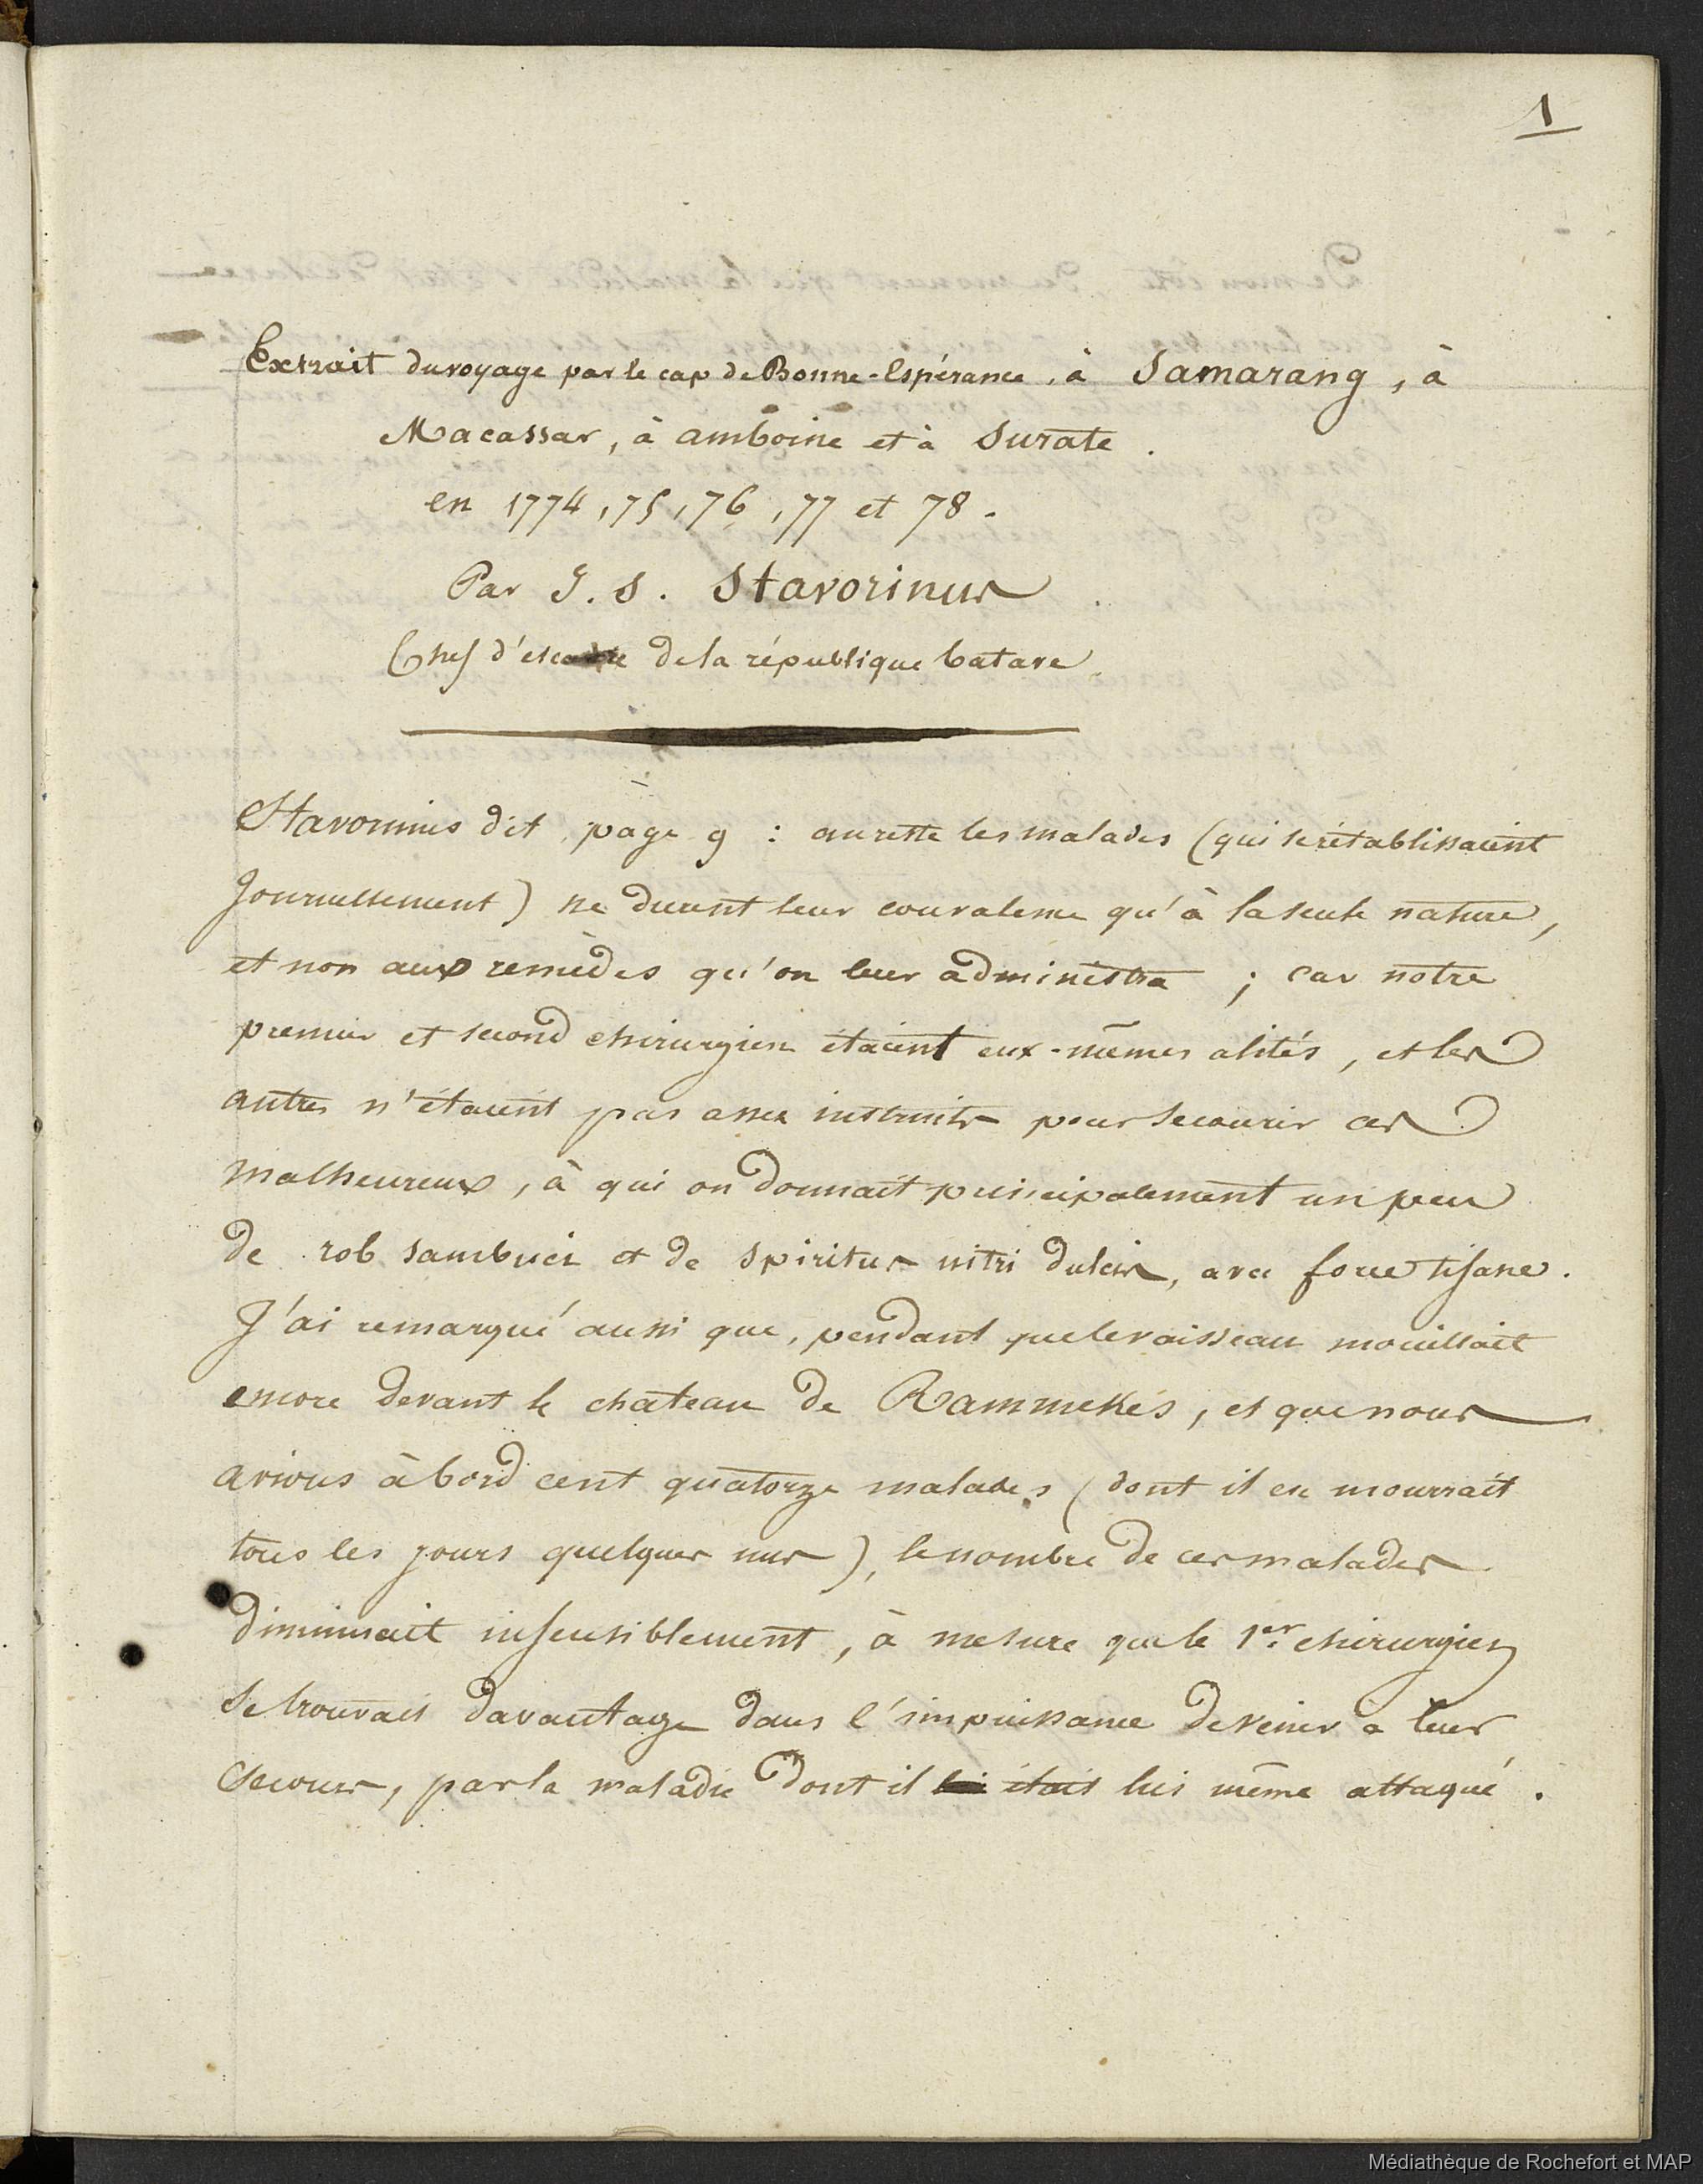 1
Extrait du voyage par le cap de Bonne-Espérance, à Samarang, à
Macassar, à amboine et à Surate.
en 1774, 75, 76, 77 et 78.
Par J. S. Stavorinus
Chef d'escadre de la république batave.
Stavorinus dit, page 9 : au reste les malades (qui se rétablissaient
Journellement) ne durent leur couvalence qu'à la seule nature,
et non aux remèdes qu'on leur administra ; car notre
premier et second chirurgien étaient eux-mêmes alités, et les
autres n'étaient pas assez instruits pour secourir ces
malheureux, à qui on donnait principalement un peu
de rob sambuci et de spiritus nitri dulcis, avec force tisane.
J'ai remarqué aussi que, pendant que le vaisseau mouillait
encore devant le chateau de Rammekes, et que nous
avions à bord cent quatorze malades (dont il en mourrait
tous les jours quelques uns), le nombre de ces malades
diminuait insensiblement, à mesure que le 1er chirurgien
se trouvait davantage dans l'impuissance de venir à leur
secours, par la maladie dont il était lui même attaqué.
Médiathèque de Rochefort et MAP